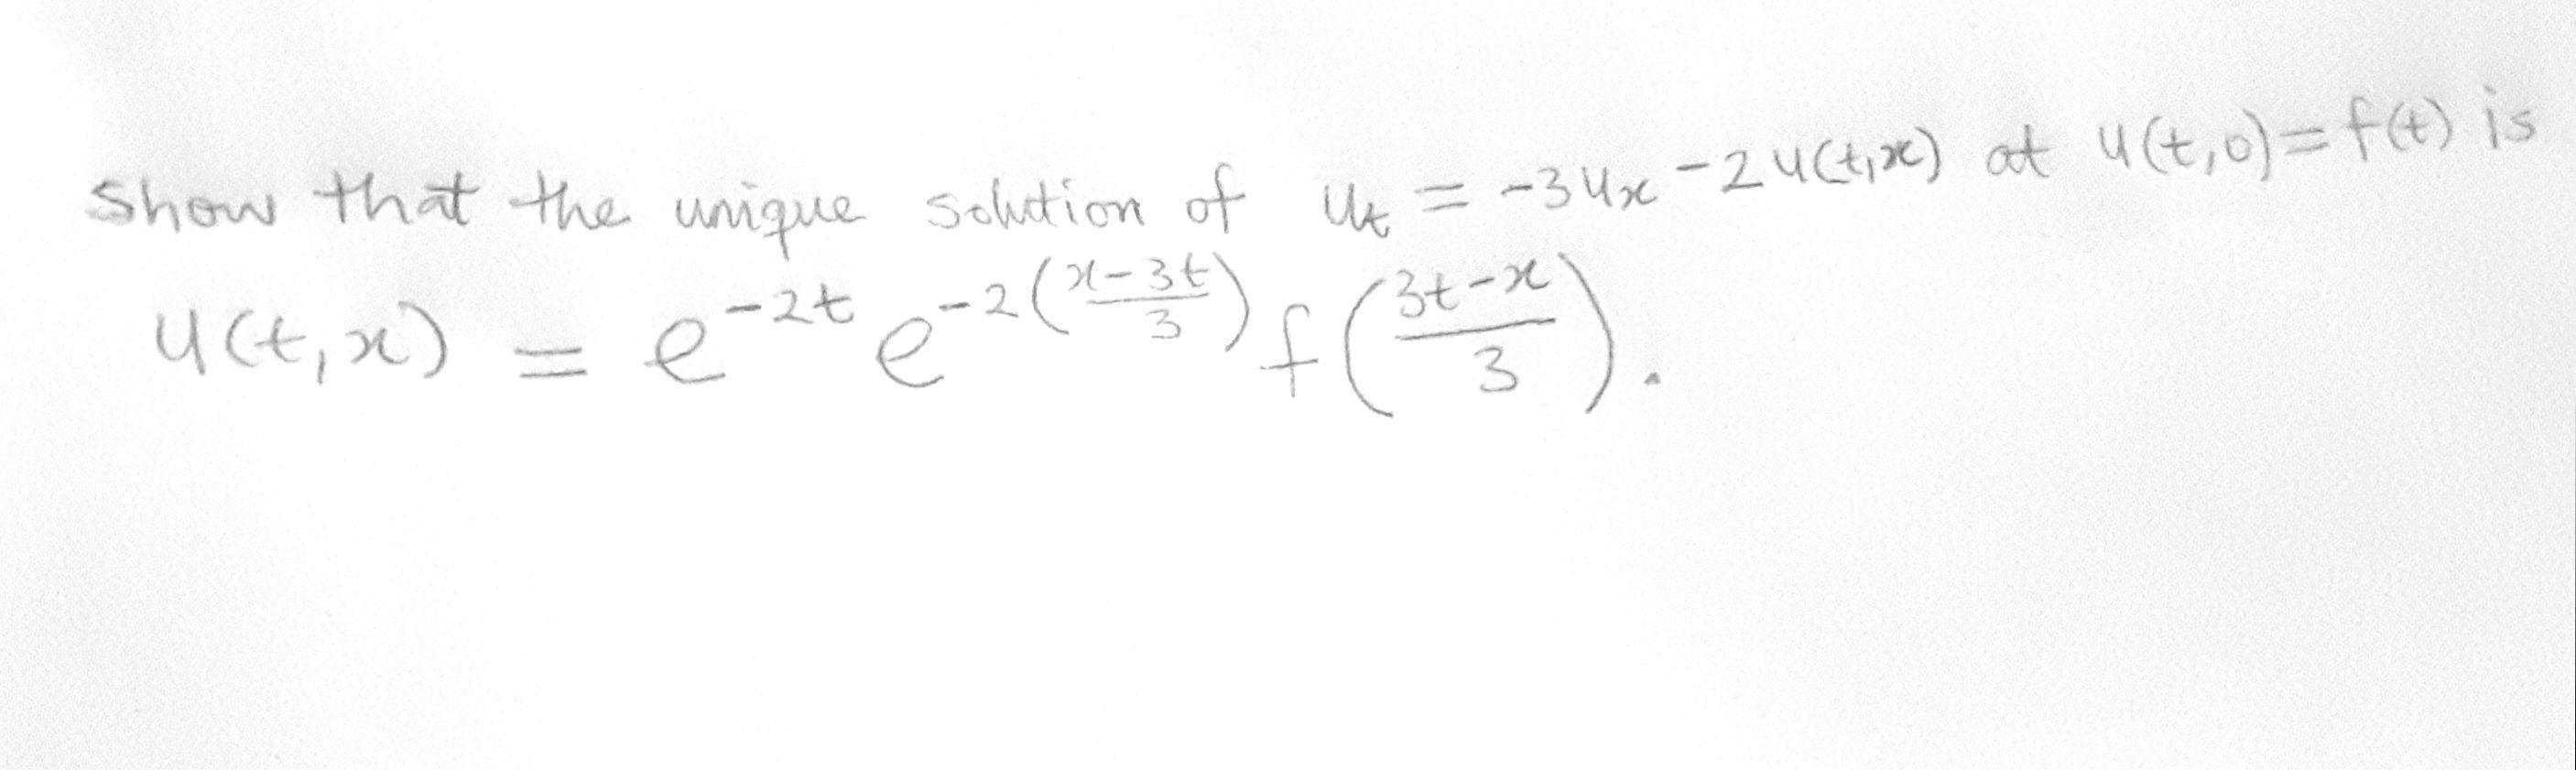 Show that the unique solution of u_t = -3u_x - 2u(t,x) at u(t,0) = f(t) is
u(t,x) = e^{-2t} e^{-2(\frac{x-3t}{3})} f(\frac{3t-x}{3}).